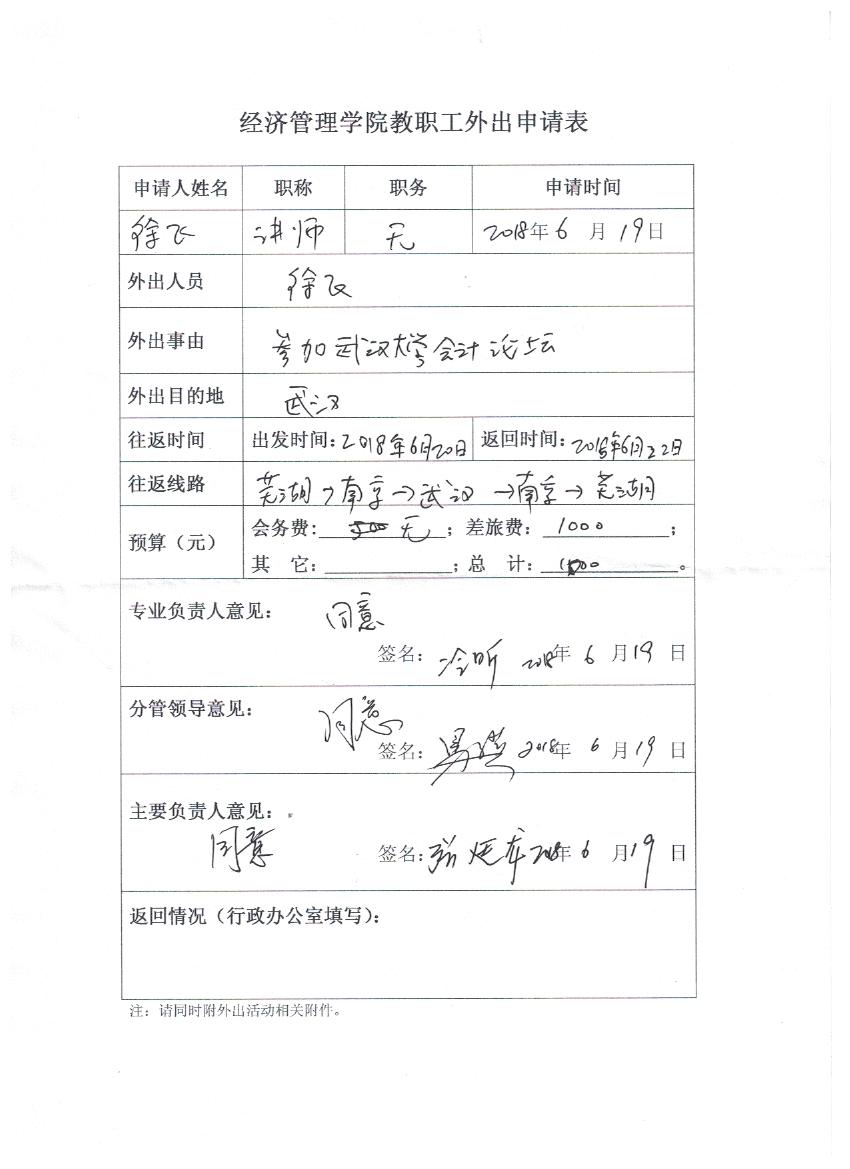 经济管理学院教职工外出申请表
申请人姓名 职称 职务 申请时间
徐飞 讲师 无 2018年 6 月 19日
外出人员 徐飞
外出事由 参加武汉大学会计论坛
外出目的地 武汉
往返时间 出发时间:2018年6月20日 返回时间:2018年6月22日
往返线路 芜湖→南京→武汉→南京→芜湖
预算（元） 会务费: 无 ；差旅费: 1000 ；
其 它: ；总 计: 1000 。
专业负责人意见： 同意
签名： 2018年 6 月19 日
分管领导意见： 同意
签名： 2018年 6 月19 日
主要负责人意见：
同意 签名: 张廷龙 2018年 6 月19 日
返回情况（行政办公室填写）：
注：请同时附外出活动相关附件。